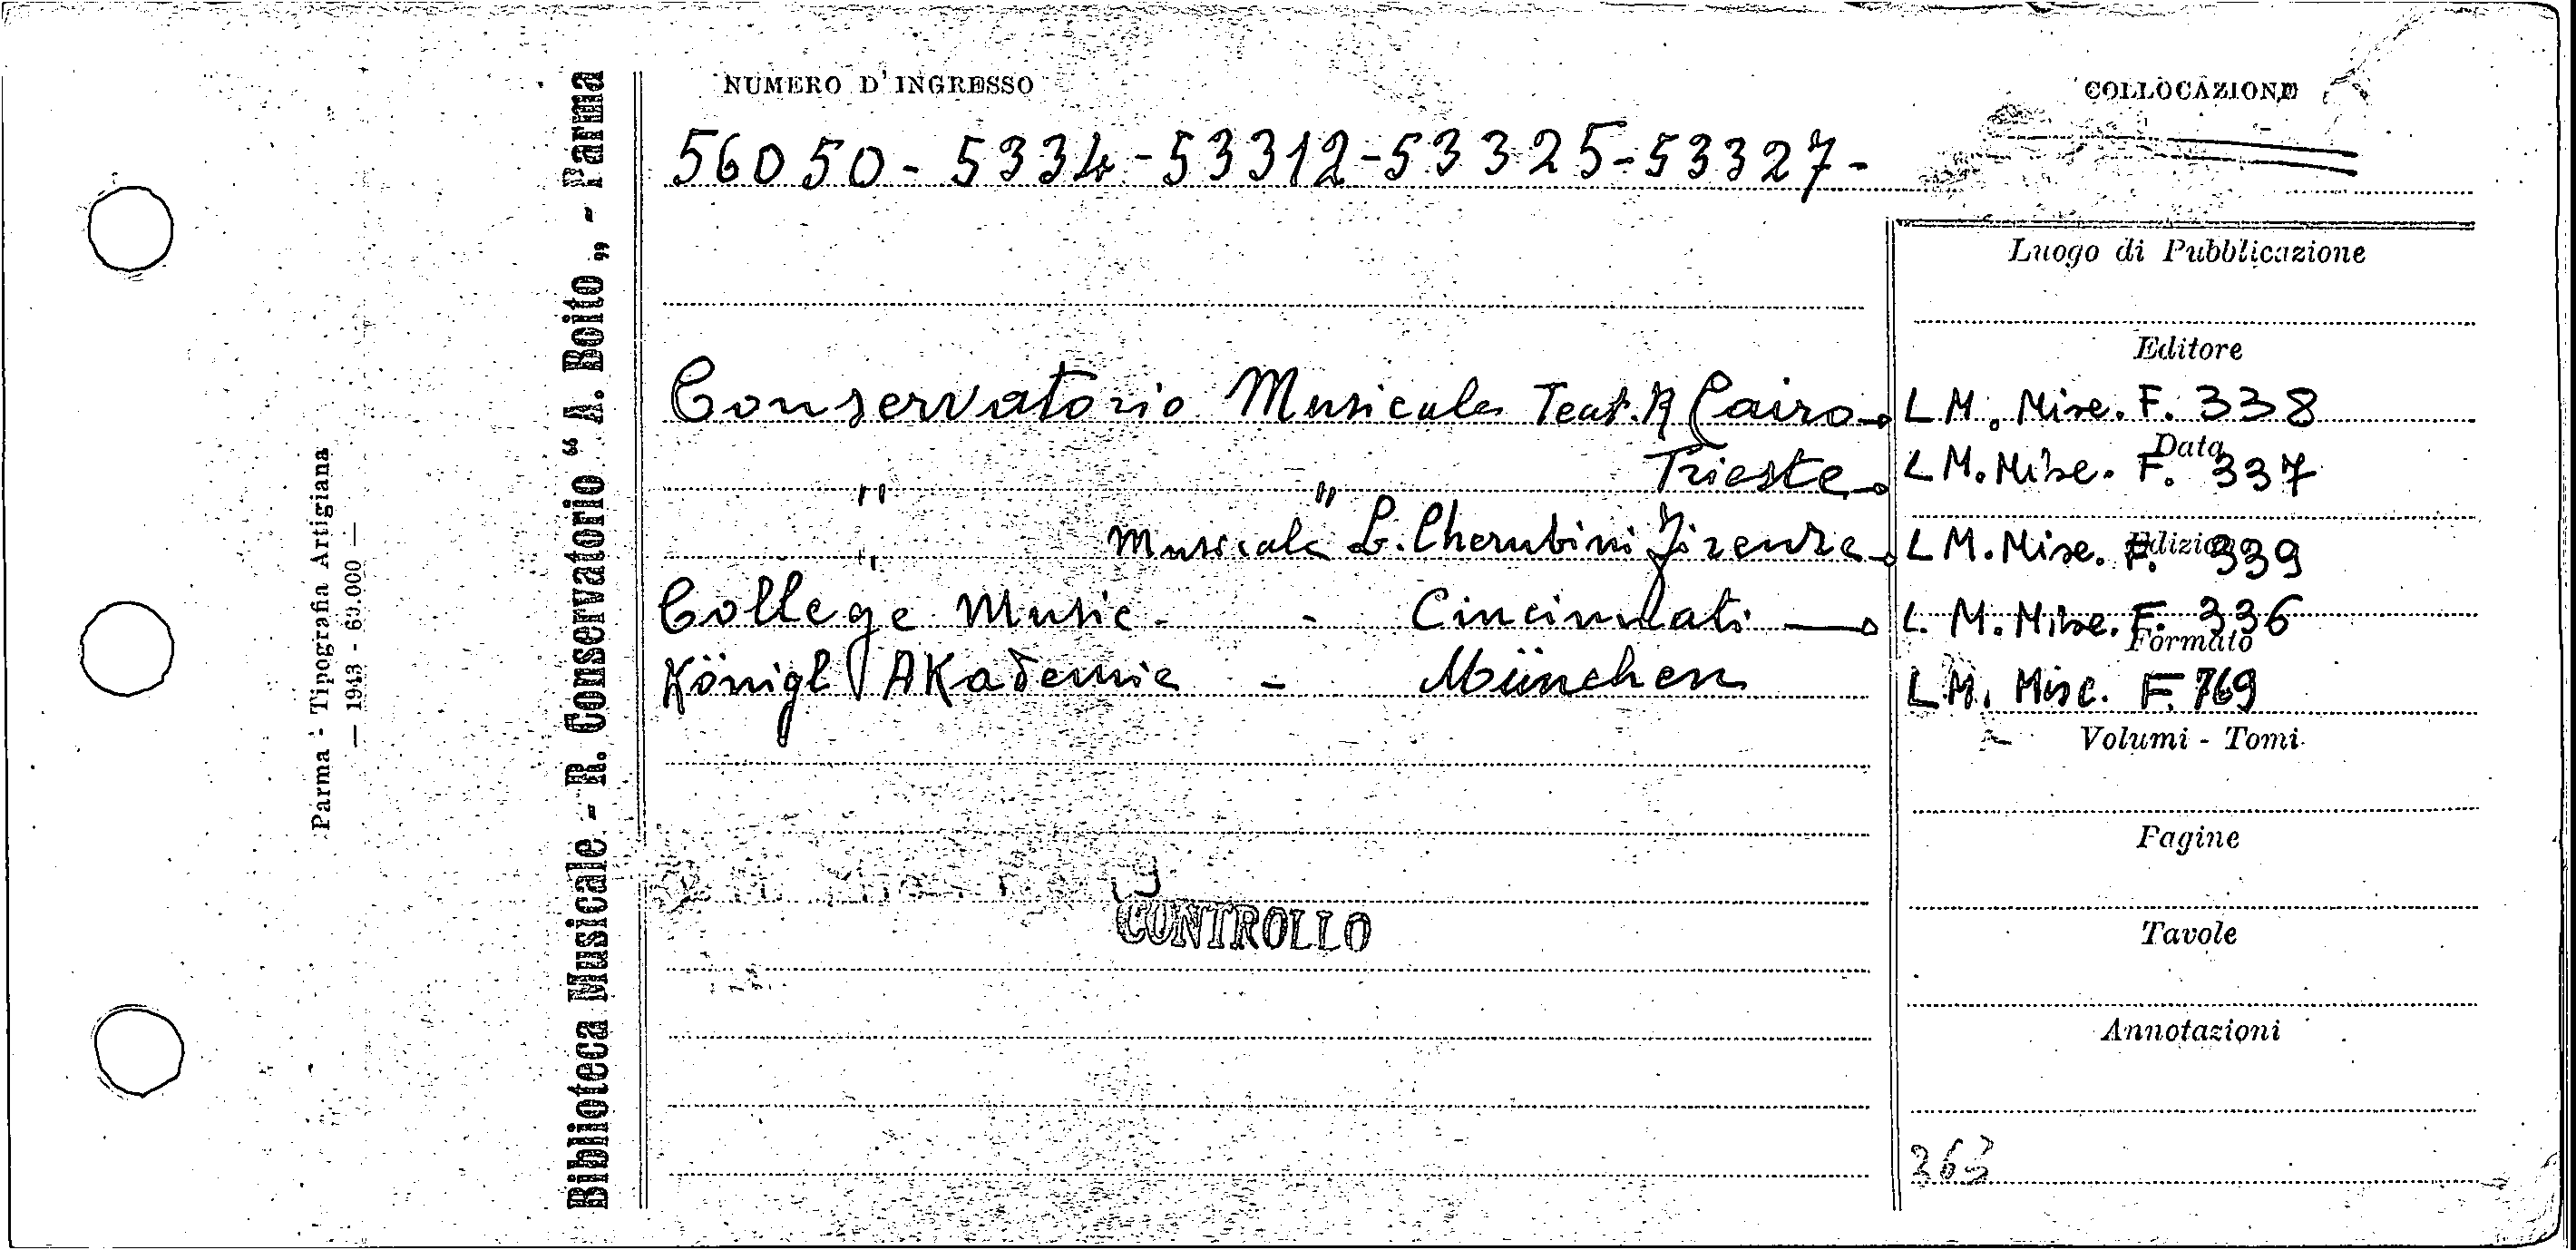 NUMERO D'INGRESSO
COLLOCAZIONE
56050 - 5334 - 53312 - 53325 - 53327 -
Luogo di Pubblicazione
Editore
Conservatorio Musicale Teat. R Cairo L M. Misc. F. 338
Data
" " Trieste L M. Misc. F. 337
Edizione
" Musicale L. Cherubini Firenze L M. Misc. F. 339
College Music - - Cincinnati L. M. Misc. F. 336
Formato
Königl Akademie - München L.M. Misc. F. 769
Volumi - Tomi
Pagine
CONTROLLO
Tavole
Annotazioni
363
Biblioteca Musicale - R. Conservatorio “ A. Boito „ - Parma
Parma - Tipografia Artigiana
— 1943 - 60.000 —